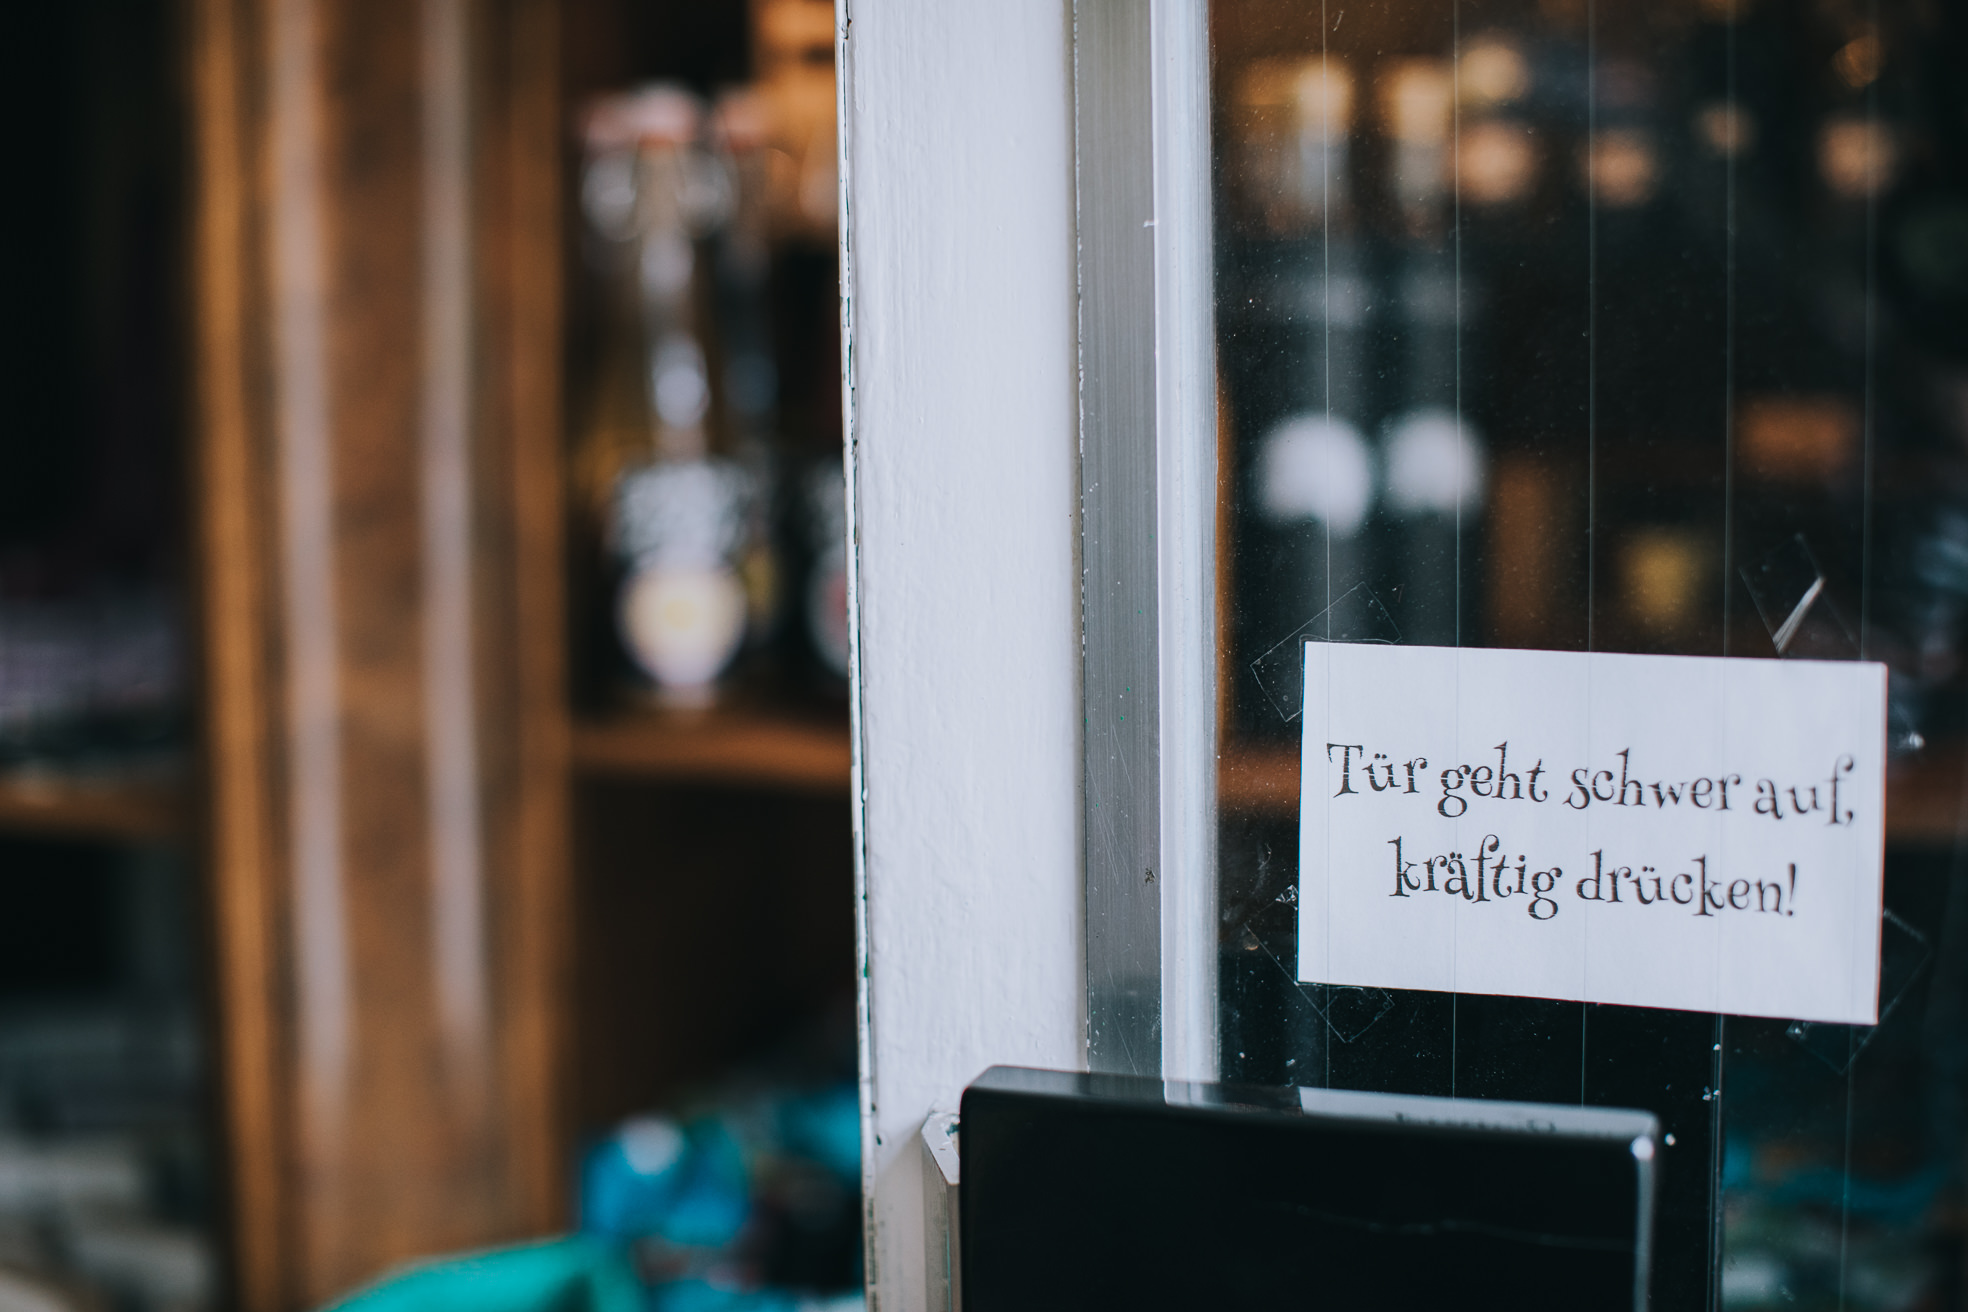 Tür geht schwer auf,
kräftig drücken!